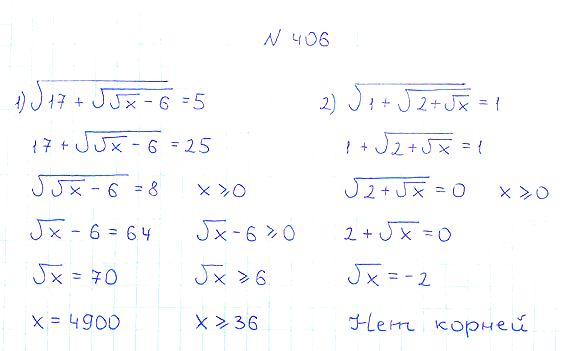 N 406
1) √(17 + √(√x - 6)) = 5
17 + √(√x - 6) = 25
√(√x - 6) = 8 x ⩾ 0
√x - 6 = 64 √x - 6 ⩾ 0
√x = 70 √x ⩾ 6
x = 4900 x ⩾ 36
2) √(1 + √(2 + √x)) = 1
1 + √(2 + √x) = 1
√(2 + √x) = 0 x ⩾ 0
2 + √x = 0
√x = -2
Нет корней